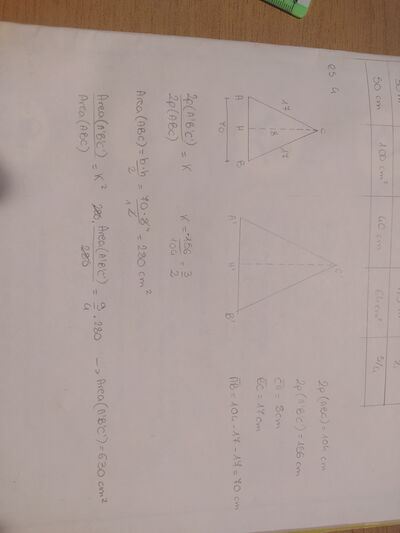 50 cm 100 cm² 40 cm 64 cm² 5/4
es 4
C
17 8 17
A H B
70
C'
A' H' B'
2p(ABC) = 104 cm
2p(A'B'C') = 156 cm
CH = 8cm
BC = 17cm
AB = 104-17-17 = 70 cm
2p(A'B'C')/2p(ABC) = K K = 156/104 = 3/2
Area(ABC) = b·h/2 = 70·8/2 = 280 cm²
Area(A'B'C')/Area(ABC) = K² 280·Area(A'B'C')/280 = 9/4·280 → Area(A'B'C') = 630 cm²